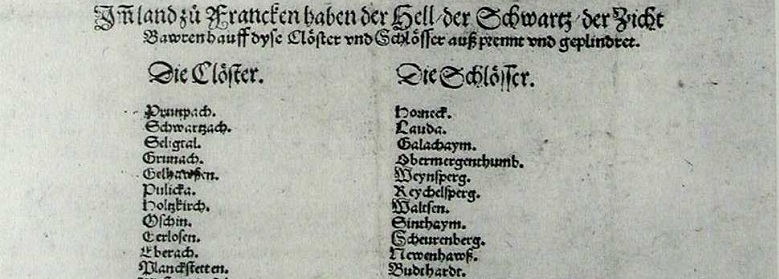 Jn̄land zů Francken haben der Hell/der Schwartz/der Zicht
Bawrenhauff dyse Clöster vnd Schlösser auß prennt vnd geplindret.
Die Clöster.
Die Schlösser.
Schwartzach.
Seligtal.
Grunach.
Gelhawsen.
Pulicka.
Holtzkirch.
Oschin.
Cerlosen.
Eberach.
Planckstetten.
Horneck.
Lauda.
Galachaym.
Obermergenthumb.
Weynsperg.
Reychelsperg.
Waltsen.
Sinthaym.
Scheurenberg.
Newenhawß.
Budthardt.